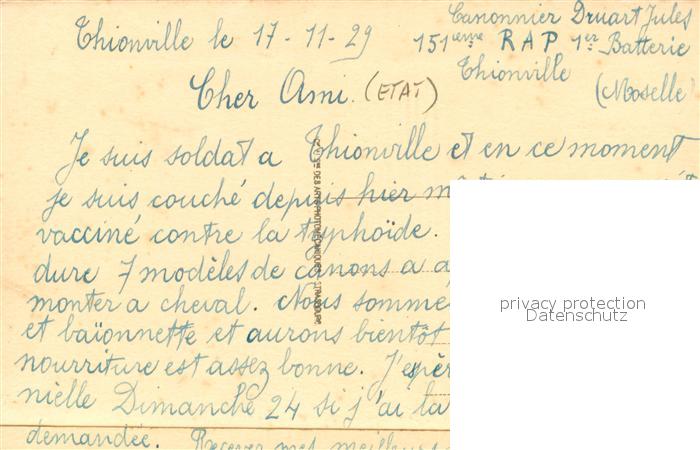 Canonnier Druart Jules
Thionville le 17-11-29 151ème R A P 1er Batterie
Thionville (Moselle)
Cher Ami. (ETAT)
Je suis soldat a Thionville et en ce moment
je suis couché depuis hier
vacciné contre la typhoïde.
dure 7 modèles de canons a
monter a cheval. Nous somme
et baïonnette et aurons bientôt
nourriture est assez bonne. J'espèr
nielle Dimanche 24 si j'ai la
demandée. Recevez mes meilleurs
DES ARTS PHOTOMECANIQUES STRASBOURG
privacy protection
Datenschutz